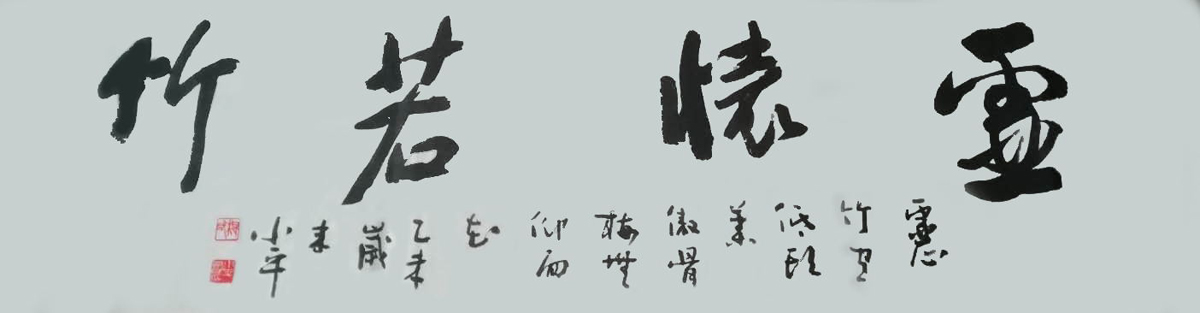 虚懷若竹
虚心
竹有
低頭
葉
傲骨
梅無
仰面
花
乙未
歲
末
小平